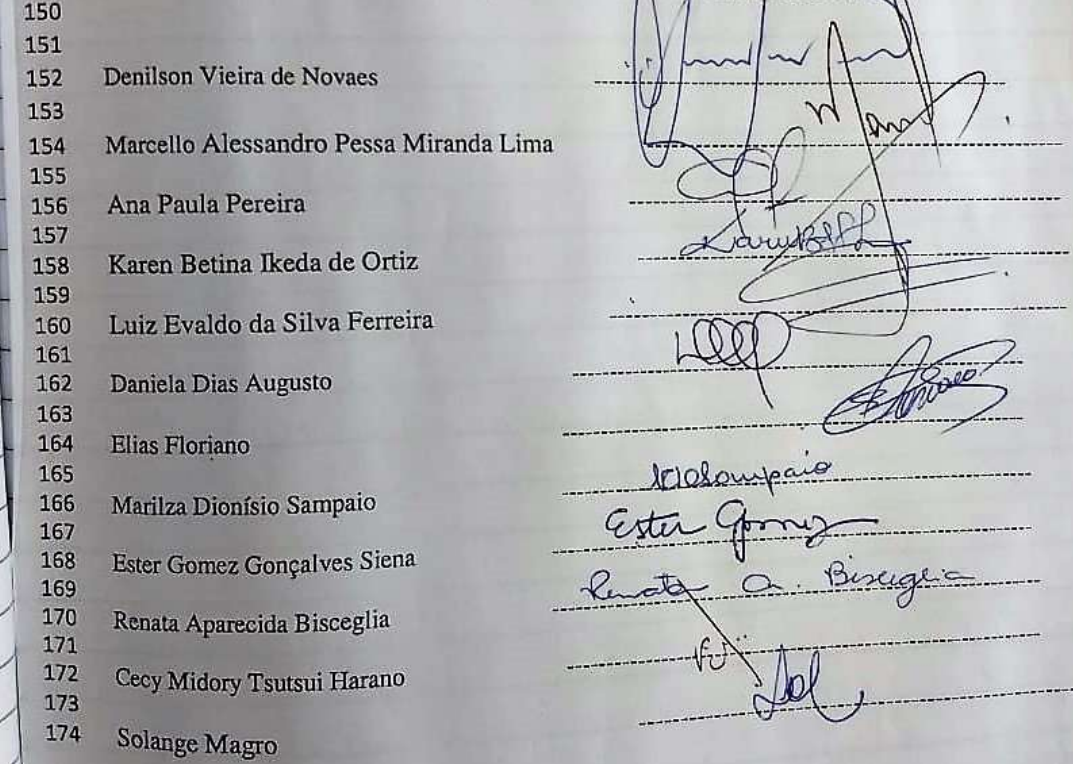 150
151
152 Denilson Vieira de Novaes
153
154 Marcello Alessandro Pessa Miranda Lima
155
156 Ana Paula Pereira
157
158 Karen Betina Ikeda de Ortiz
159
160 Luiz Evaldo da Silva Ferreira
161
162 Daniela Dias Augusto
163
164 Elias Floriano
165
Sampaio
166 Marilza Dionísio Sampaio
167
Ester Gomez
168 Ester Gomez Gonçalves Siena
169
Renata A. Bisceglia
170 Renata Aparecida Bisceglia
171
172 Cecy Midory Tsutsui Harano
173
Sol
174 Solange Magro